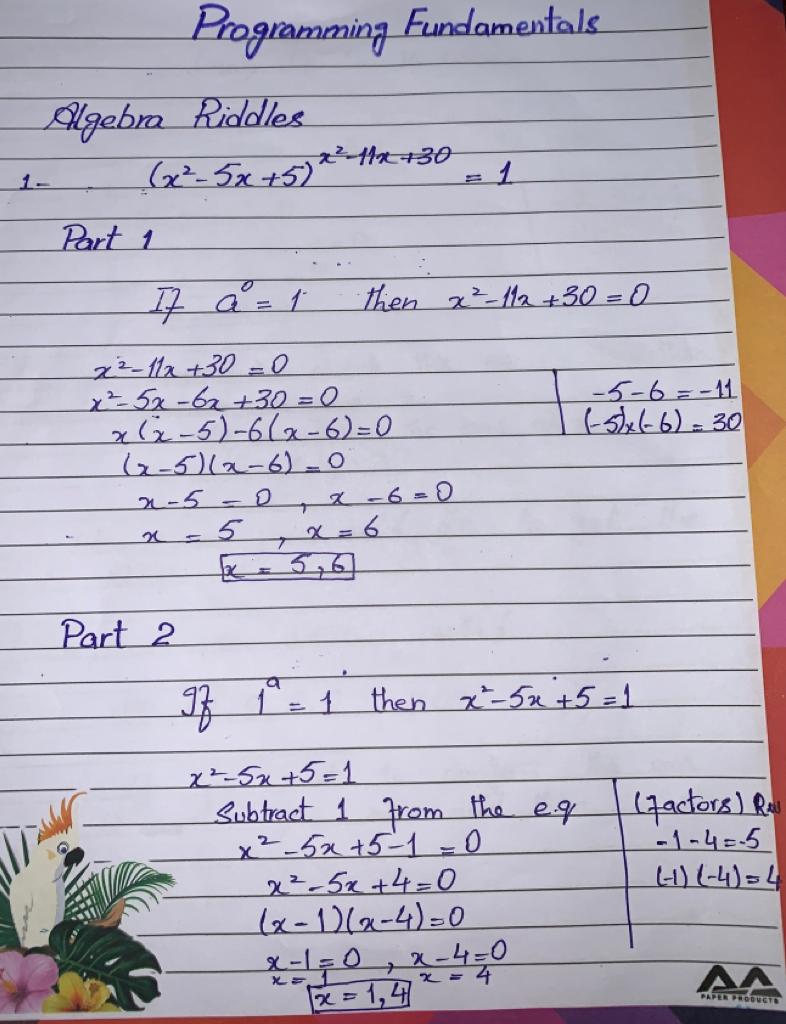 Programming Fundamentals
Algebra Riddles
1- (x²-5x+5)^x²-11x+30 = 1
Part 1
If a⁰ = 1 then x²-11x+30=0
x²-11x+30=0
x²-5x-6x+30=0 | -5-6=-11
x(x-5)-6(x-6)=0 | (-5)x(-6)=30
(x-5)(x-6)=0
x-5=0, x-6=0
x=5, x=6
x=5,6
Part 2
If 1ᵃ=1 then x²-5x+5=1
x²-5x+5=1
Subtract 1 from the eq | (factors)
x²-5x+5-1=0 | -1-4=-5
x²-5x+4=0 | (-1)(-4)=4
(x-1)(x-4)=0
x-1=0, x-4=0
x=1 x=4
x=1,4
AA
PAPER PRODUCTS